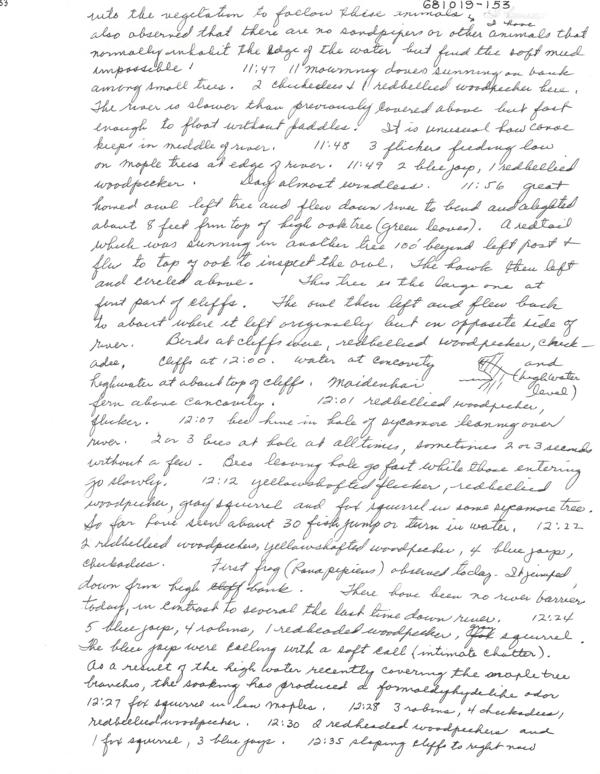 53
681019-153
into the vegetation to follow these animals. I have
also observed that there are no sandpipers or other animals that
normally inhabit the edge of the water but find the soft mud
impossible! 11:47 11 mourning doves sunning on bank
among small trees. 2 chickadees & 1 redbellied woodpecker here.
The river is slower than previously covered above but fast
enough to float without paddles. It is unusual how canoe
keeps in middle of river. 11:48 3 flickers feeding low
on maple trees at edge of river. 11:49 2 blue jays, 1 redbellied
woodpecker. Day almost windless. 11:56 great
horned owl left tree and flew down river to bend and alighted
about 8 feet from top of high oak tree (green leaves). A redtail
which was sunning in another tree 100' beyond left post &
flew to top of oak to inspect the owl. The hawk then left
and circled above. This tree is the large one at
first part of cliffs. The owl then left and flew back
to about where it left originally but on opposite side of
river. Birds at cliffs were, redbellied woodpecker, chick-
adee, cliffs at 12:00. water at concavity and
highwater at about top of cliffs. Maidenhair (highwater
level)
fern above concavity. 12:01 redbellied woodpecker,
flicker. 12:07 bee hive in hole of sycamore leaning over
river. 2 or 3 bees at hole at all times, sometimes 2 or 3 seconds
without a few. Bees leaving hole go fast while those entering
go slowly. 12:12 yellowshafted flicker, redbellied
woodpecker, gray squirrel and fox squirrel in same sycamore tree.
So far have seen about 30 fish jump or turn in water. 12:22
2 redbellied woodpeckers, yellowshafted woodpecker, 4 blue jays,
chickadees. First frog (Rana pipiens) observed today. It jumped
down from high cliff bank. There have been no river barriers
today, in contrast to several the last time down river. 12:24
5 blue jays, 4 robins, 1 redheaded woodpecker, squirrel.
The blue jays were calling with a soft call (intimate chatter).
As a result of the high water recently covering the maple tree
branches, the soaking has produced a formaldyhydelike odor
12:27 fox squirrel in low maples. 12:28 3 robins, 4 chickadees,
redbellied woodpecker. 12:30 2 redheaded woodpeckers and
1 fox squirrel, 3 blue jays. 12:35 sloping cliffs to right now